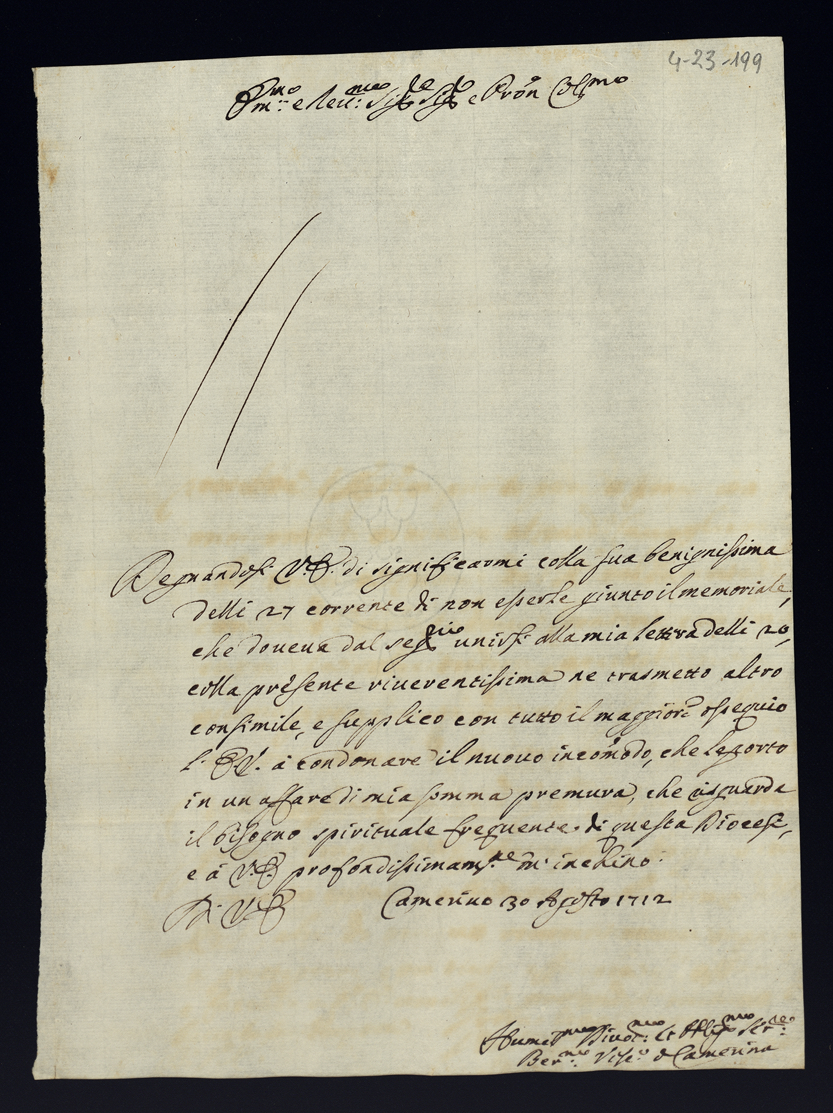 4-23-199
Em.mo e Rev.mo Sig.re Sig.re e Pron Col.mo
Degnandosi V.E. di significarmi colla sua benignissima
delli 27 corrente di non esserle giunto il memoriale,
che doveva dal seg.rio unirsi alla mia lettra delli 20,
colla presente riverentissima ne trasmetto altro
consimile, e supplico con tutto il maggiore ossequio
l'E.V. à condonare il nuovo incomodo, che le porto
in un affare di mia somma premura, che risguarda
il bisogno spirituale frequente di questa Diocesi,
e à V.E. profondissimam.te m'inchino.
Di V.E. Camerino 30 Agosto 1712
Hum.mo Divot.mo et Oblig.mo Ser.re
Ber.no Vesc.o di Camerino